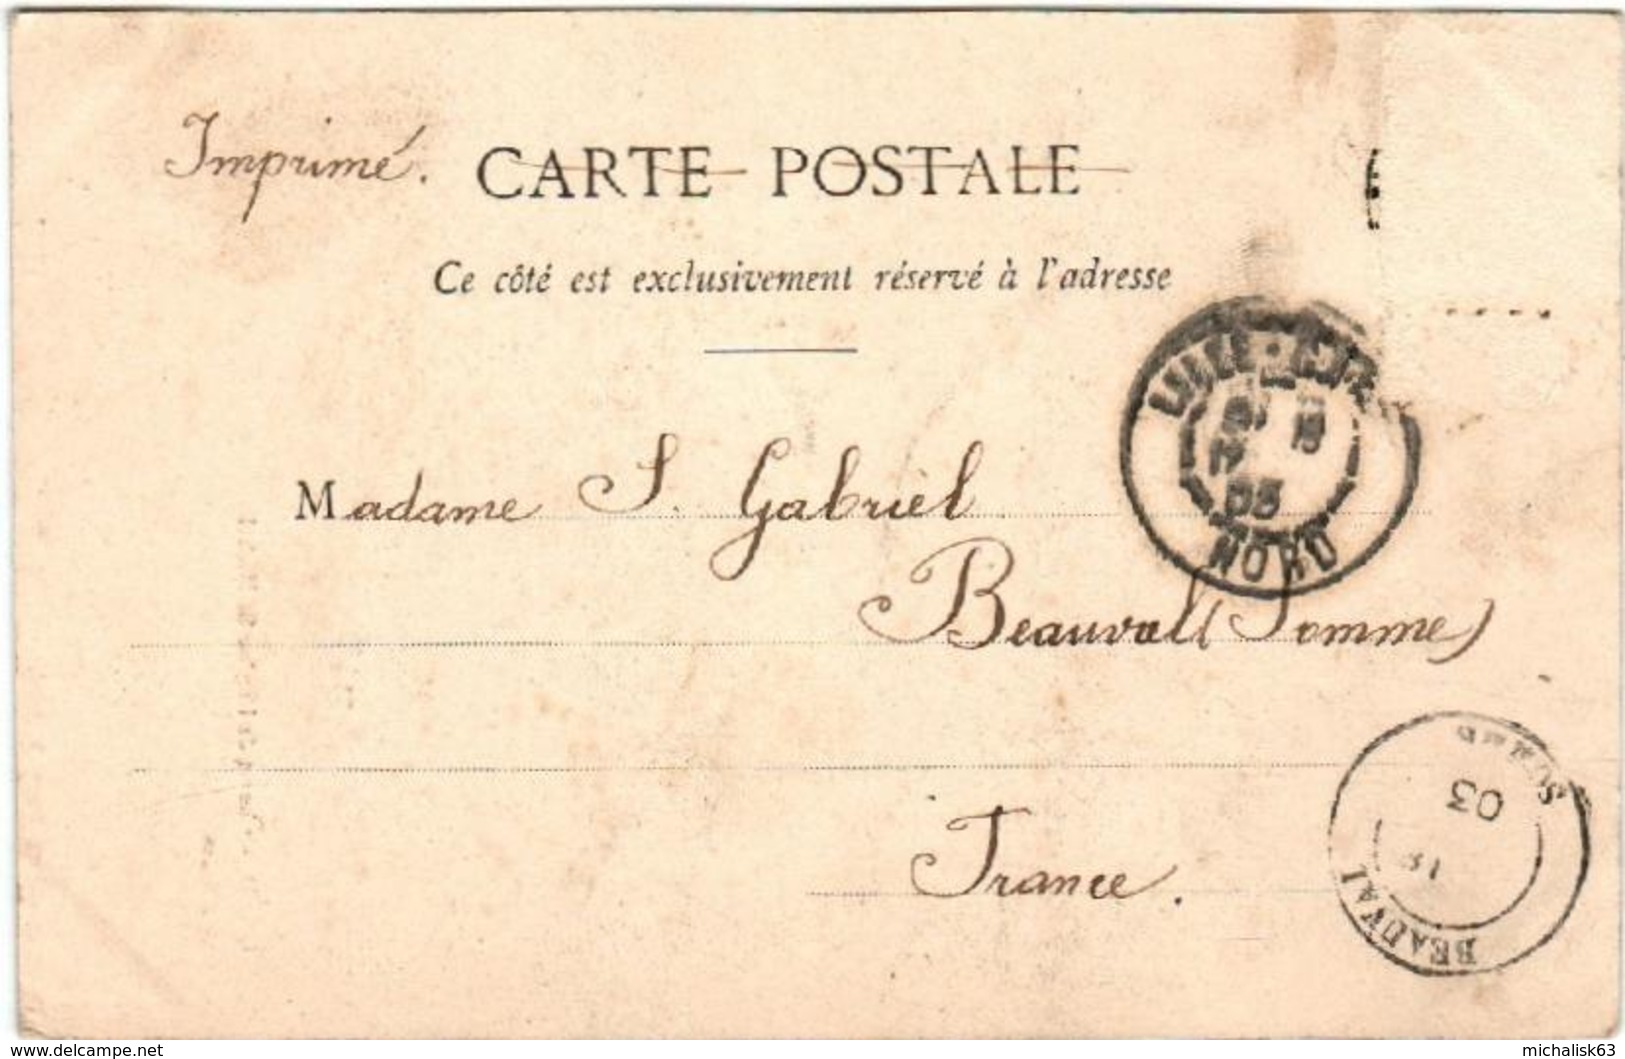 Imprimé.
CARTE POSTALE
Ce côté est exclusivement réservé à l'adresse
LILLE
03
NORD
Madame S. Gabriel
Beauvall (Somme)
France.
BEAUVAL
03
18
www.delcampe.net
michalisk63